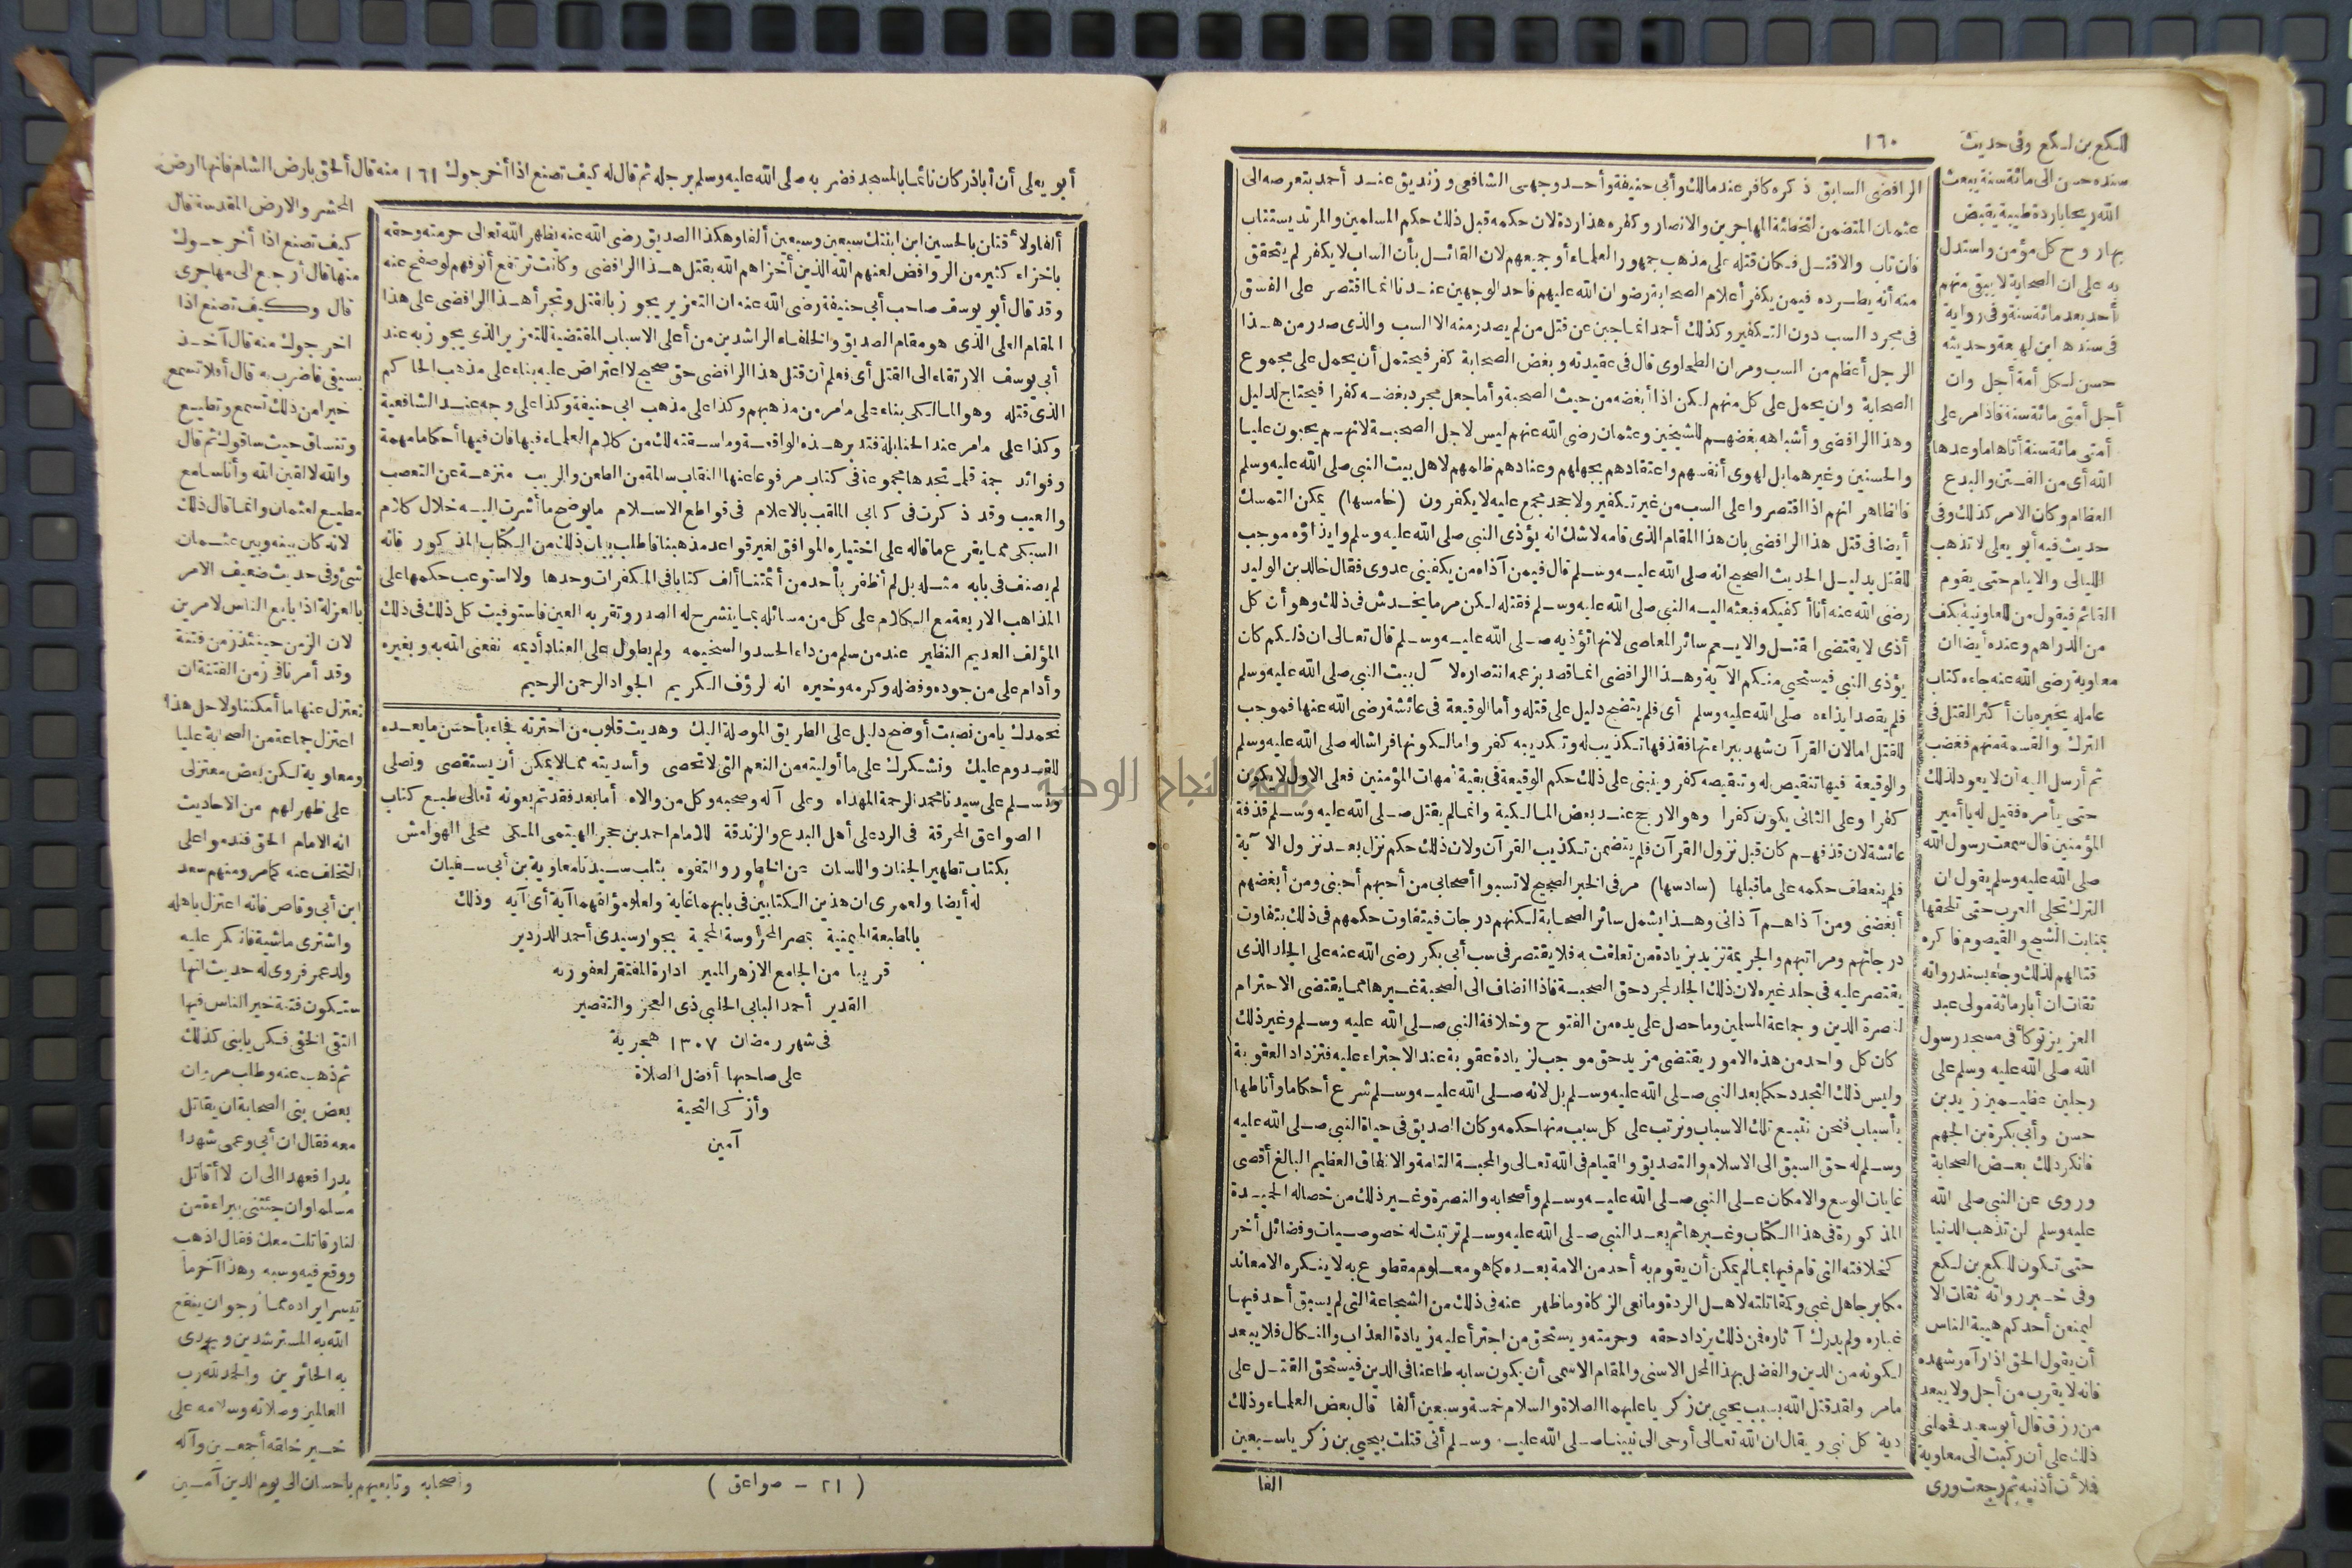 ١٦٠
للكع بن لكع وفى حديث
سنده حسن الى مائة سنة يبعث
الله ريحا باردة طيبة يقبض
بها روح كل مؤمن واستدل
به على ان الصحابة لا يبقى منهم
أحد بعد مائة سنة وفى رواية
فى سندها ابن لهيعة وحديثه
حسن لكل أمة أجل وان
أجل أمتى مائة سنة فاذا مر على
أمتى مائة سنة أتاها ما وعدها
الله أى من الفتن والبدع
العظام وكان الامر كذلك وفى
حديث فيه أبو يعلى لا تذهب
الليالى والايام حتى يقوم
القائم فيقول من لمعاوية بكف
من الدراهم وعنده أيضا ان
معاوية رضى الله عنه جاءه كتاب
عامله يخبره بان أكثر القتل فى
الترك والقسمة منهم فغضب
ثم أرسل اليه أن لا يعود لذلك
حتى يأمره فقيل له يا أمير
المؤمنين قال سمعت رسول الله
صلى الله عليه وسلم يقول ان
الترك تجلى العرب حتى تلحقها
بمنابت الشيح والقيصوم فاكره
قتالهم لذلك وجاء بسند رواته
ثقات ان
العزيز توكأ فى مسجد رسول
الله صلى الله عليه وسلم على
رجلين
حسن وأبى بكرة بن الجهم
فانكر ذلك بعض الصحابة
وروى عن النبى صلى الله
عليه وسلم لن تذهب الدنيا
حتى تكون للكع بن لكع
وفى خبر رواته ثقات الا
ليمنعن أحدكم هيبة الناس
أن يقول الحق اذا رآه وشهده
فانه لا يقرب من أجل ولا يبعد
من رزق قال أبو سعيد فحملنى
ذلك على أن ركبت الى معاوية
فلأت أذنيه ثم رجعت وروى
الرافضى السابق ذكره كافر عند مالك وأبى حنيفة وأحد وجهى الشافعى وزنديق عند أحمد بتعرضه الى
عثمان المتضمن لتخطئة المهاجرين والانصار وكفره هذا ردة لان حكمه قبل ذلك حكم المسلمين والمرتد يستتاب
فان تاب والاقتل فكان قتله على مذهب جمهور العلماء أو جميعهم لان القائل بأن الساب لا يكفر لم يتحقق
منه أنه يطرده فيمن يكفر أعلام الصحابة رضوان الله عليهم فاحد الوجهين عندنا انما اقتصر على الفسق
فى مجرد السب دون التكفير وكذلك أحمد انما جبن عن قتل من لم يصدر منه الا السب والذى صدر من هذا
الرجل أعظم من السب ومر ان الطحاوى قال فى عقيدته وبغض الصحابة كفر فيحتمل أن يحمل على مجموع
الصحابة وان يحمل على كل منهم لكن اذا أبغضه من حيث الصحبة وأما جعل مجرد بغضه كفرا فيحتاج لدليل
وهذا الرافضى وأشباهه بغضهم للشيخين وعثمان رضى الله عنهم ليس لاجل الصحبة لانهم يحبون عليا
والحسنين وغيرهما بل لهوى أنفسهم واعتقادهم بجهلهم وعنادهم ظلمهم لاهل بيت النبى صلى الله عليه وسلم
فالظاهر انهم اذا اقتصروا على السب من غير تكفير ولا جحد مجمع عليه لا يكفرون (خامسها) يمكن التمسك
أيضا فى قتل هذا الرافضى بان هذا المقام الذى قامه لا شك انه يؤذى النبى صلى الله عليه وسلم وايذاؤه موجب
للقتل بدليل الحديث الصحيح انه صلى الله عليه وسلم قال فيمن آذاه من يكفينى عدوى فقال خالد بن الوليد
رضى الله عنه أنا أكفيكه فبعثه اليه النبى صلى الله عليه وسلم فقتله لكن مر ما يخدش فى ذلك وهو أن كل
أذى لا يقتضى القتل والايعم سائر المعاصى لانها تؤذيه صلى الله عليه وسلم قال تعالى ان ذلكم كان
يؤذى النبى فيستحيى منكم الآية وهذا الرافضى انما قصد بزعمه انتصاره لآل بيت النبى صلى الله عليه وسلم
فلم يقصد ايذاءه صلى الله عليه وسلم أى فلم يتضح دليل على قتله وأما الوقيعة فى عائشة رضى الله عنها فموجب
للقتل اما لان القرآن شهد ببراءتها فقذفها تكذيب له وتكذيبه كفر واما لكونها فراشا له صلى الله عليه وسلم
والوقيعة فيها تنقيص له وتنقيصه كفر وينبنى على ذلك حكم الوقيعة فى بقية أمهات المؤمنين فعلى الاول لا يكون
كفرا وعلى الثانى يكون كفرا وهو الارجح عند بعض المالكية وانما لم يقتل صلى الله عليه وسلم قذفة
عائشة لان قذفهم كان قبل نزول القرآن فلم يتضمن تكذيب القرآن ولان ذلك حكم نزل بعد نزول الآية
فلم ينعطف حكمه على ما قبلها (سادسها) مر فى الخبر الصحيح لا تسبوا أصحابى من أحبهم أحبنى ومن أبغضهم
أبغضنى ومن آذاهم آذانى وهذا يشمل سائر الصحابة لكنهم درجات فيتفاوت حكمهم فى ذلك بتفاوت
درجاتهم ومراتبهم والجريمة تزيد بزيادة من تعلقت به فلا يقتصر فى سب أبى بكر رضى الله عنه على الجلد الذى
يقتصر عليه فى جلد غيره لان ذلك الجلد لمجرد حق الصحبة فاذا انضاف الى الصحبة غيرها مما يقتضى الاحترام
لنصرة الدين وجماعة المسلمين وما حصل على يده من الفتوح وخلافة النبى صلى الله عليه وسلم وغير ذلك
كان كل واحد من هذه الامور يقتضى مزيد حق موجب لزيادة عقوبة عند الاجتراء عليه فتزداد العقوبة
وليس ذلك التجدد حكم بعد النبى صلى الله عليه وسلم بل لانه صلى الله عليه وسلم شرع أحكاما وأناطها
بأسباب فنحن نتبع تلك الاسباب ونرتب على كل سبب منها حكمه وكان الصديق فى حياة النبى صلى الله عليه
وسلم له حق السبق الى الاسلام والتصديق والقيام فى الله تعالى والمحبة التامة والانفاق العظيم البالغ أقصى
غايات الوسع والامكان على النبى صلى الله عليه وسلم وأصحابه والنصرة وغير ذلك من خصاله الحميدة
المذكورة فى هذا الكتاب وغيرها ثم بعد النبى صلى الله عليه وسلم ترتبت له خصوصيات وفضائل أخر
كخلافته التى قام فيها بما لم يمكن أن يقوم به أحد من الامة بعده كما هو معلوم مقطوع به لا ينكره الا معاند
مكابر جاهل غبى وكمقاتلته لاهل الردة ومانعى الزكاة وما ظهر عنه فى ذلك من الشجاعة التى لم يسبق أحد فيها
غباره ولم يدرك آثاره فمن ذلك يزداد حقه وحرمته ويستحق من اجترأ عليه زيادة العذاب والنكال فلا يبعد
لكونه من الدين والفضل بهذا المحل الاسنى والمقام الاسمى أن يكون سابه طاعنا فى الدين فيستحق القتل على
مامر ولقد قتل الله بسبب يحيى بن زكريا عليهما الصلاة والسلام خمسة وسبعين ألفا قال بعض العلماء وذلك
دية كل نبى ويقال ان الله تعالى أوحى الى نبينا صلى الله عليه وسلم أنى قتلت بيحيى بن زكريا سبعين
الفا
أبو يعلى أن أباذر كان نائما بالمسجد فضربه صلى الله عليه وسلم برجله ثم قال له كيف تصنع اذا أخرجوك ١٦١ منه قال ألحق بارض الشام فانها ارض
المحشر والارض المقدسة قال
كيف تصنع اذا أخرجوك
منها قال أرجع الى مهاجرى
قال وكيف تصنع اذا
اخرجوك منه قال آخذ
بسيفى فاضرب به قال أفلا تسمع
خيرا من ذلك تسمع وتطيع
وتنساق حيث ساقوك ثم قال
والله لالقين الله وأنا سامع
مطيع لعثمان وانما قال ذلك
لانه كان بينه وبين عثمان
شئ وفى حديث ضعيف الامر
بالعزلة اذا بايع الناس لامرين
لان الزمن حينئذ زمن فتنة
وقد أمرنا فى زمن الفتنة ان
نعتزل عنها ما أمكننا ولاجل هذا
اعتزل جماعة من الصحابة عليا
ومعاوية لكن بعض معتزلى
على ظهر لهم من الاحاديث
انه الامام الحق فندموا على
التخلف عنه كما مر ومنهم سعد
ابن أبى وقاص فانه اعتزل باهله
واشترى ماشية فانكر عليه
ولده عمر فروى له حديث انها
ستكون فتنة خير الناس فيها
التقى الخفى فكن يا بنى كذلك
ثم ذهب عنه وطلب مروان
بعض بنى الصحابة ان يقاتل
معه فقال ان أبى وعمى شهدا
بدرا فعهدا الى ان لا أقاتل
مسلما وان جئتنى ببراءة من
النار قاتلت معك فقال اذهب
ووقع فيه وسبه وهذا آخر ما
تيسر ايراده مما أرجو ان ينفع
الله به المسترشدين ويهدى
به الحائرين والحمد لله رب
العالمين وصلاته وسلامه على
خير خلقه أجمعين وآله
وأصحابه وتابعيهم باحسان الى يوم الدين آمين
ألفا ولأقتلن بالحسين ابن ابنتك سبعين وسبعين ألفا وهكذا الصديق رضى الله عنه يظهر الله تعالى حرمته وحقه
باخزاء كثير من الروافض لعنهم الله الذين أخزاهم الله بقتل هذا الرافضى وكانت ترتفع أنوفهم لو صفح عنه
وقد قال أبو يوسف صاحب أبى حنيفة رضى الله عنه ان التعزير يجوز بالقتل وتجرأ هذا الرافضى على هذا
المقام العلى الذى هو مقام الصديق والخلفاء الراشدين من أعلى الاسباب المقتضية للتعزير الذى يجوز به عند
أبى يوسف الارتقاء الى القتل أى فعلم أن قتل هذا الرافضى حق صحيح لا اعتراض عليه بناء على مذهب الحاكم
الذى قتله وهو المالكى بناء على ما مر من مذهبهم وكذا على مذهب ابى حنيفة وكذا على وجه عند الشافعية
وكذا على ما مر عند الحنابلة فتدبر هذه الواقعة وما سقته لك من كلام العلماء فيها فان فيها أحكاما مهمة
وفوائد جمة قلما تجدها مجموعة فى كتاب مرفوعا عنها النقاب سالمة من الطعن والريب منزهة عن التعصب
والعيب وقد ذكرت فى كتابى الملقب بالاعلام فى قواطع الاسلام ما يوضح ما أشرت اليه خلال كلام
السبكى مما يقرع ما قاله على اختياره الموافق لغير قواعد مذهبنا فاطلب بيان ذلك من الكتاب المذكور فانه
لم يصنف فى بابه مثله بل لم أظفر بأحد من أئمتنا ألف كتابا فى المكفرات وحدها ولا استوعب حكمها على
المذاهب الاربعة مع الكلام على كل من مسائله بما ينشرح له الصدر وتقر به العين فاستوفيت كل ذلك فى ذلك
المؤلف العديم النظير عند من سلم من داء الحسد والسخيمه ولم يطول على العناد أديمه نفعنى الله به وبغيره
وأدام على من جوده وفضله وكرمه وخيره انه الرؤف الكريم الجواد الرحمن الرحيم
نحمدك يا من نصبت أوضح دليل على الطريق الموصلة اليك وهديت قلوب من اخترته فجاء بأحسن ما يعده
للقدوم عليك ونشكرك على ما أوليته من النعم التى لا تحصى وأسديته مما لا يمكن أن يستقصى ونصلى
ونسلم على سيدنا محمد الرحمة المهداه وعلى آله وصحبه وكل من والاه أما بعد فقد تم بعونه تعالى طبع كتاب
الصواعق المحرقة فى الرد على أهل البدع والزندقة للامام احمد بن حجر الهيتمى المكى محلى الهوامش
بكتاب تطهير الجنان واللسان عن الخطور والتفوه بثلب سيدنا معاوية بن أبى سفيان
له أيضا ولعمرى ان هذين الكتابين فى بابهما غاية ولعلو مؤلفهما آية أى آيه وذلك
بالمطبعة الميمنية بمصر المحروسة المحمية بجوار سيدى أحمد الدردير
قريبا من الجامع الازهر المنير ادارة المفتقر لعفو ربه
القدير أحمد البابى الحلبى ذى العجز والتقصير
فى شهر رمضان ١٣٠٧ هجرية
على صاحبها أفضل الصلاة
وأزكى التحية
آمين
(٢١ - صواعق)
جامعة النجاح الوطنية